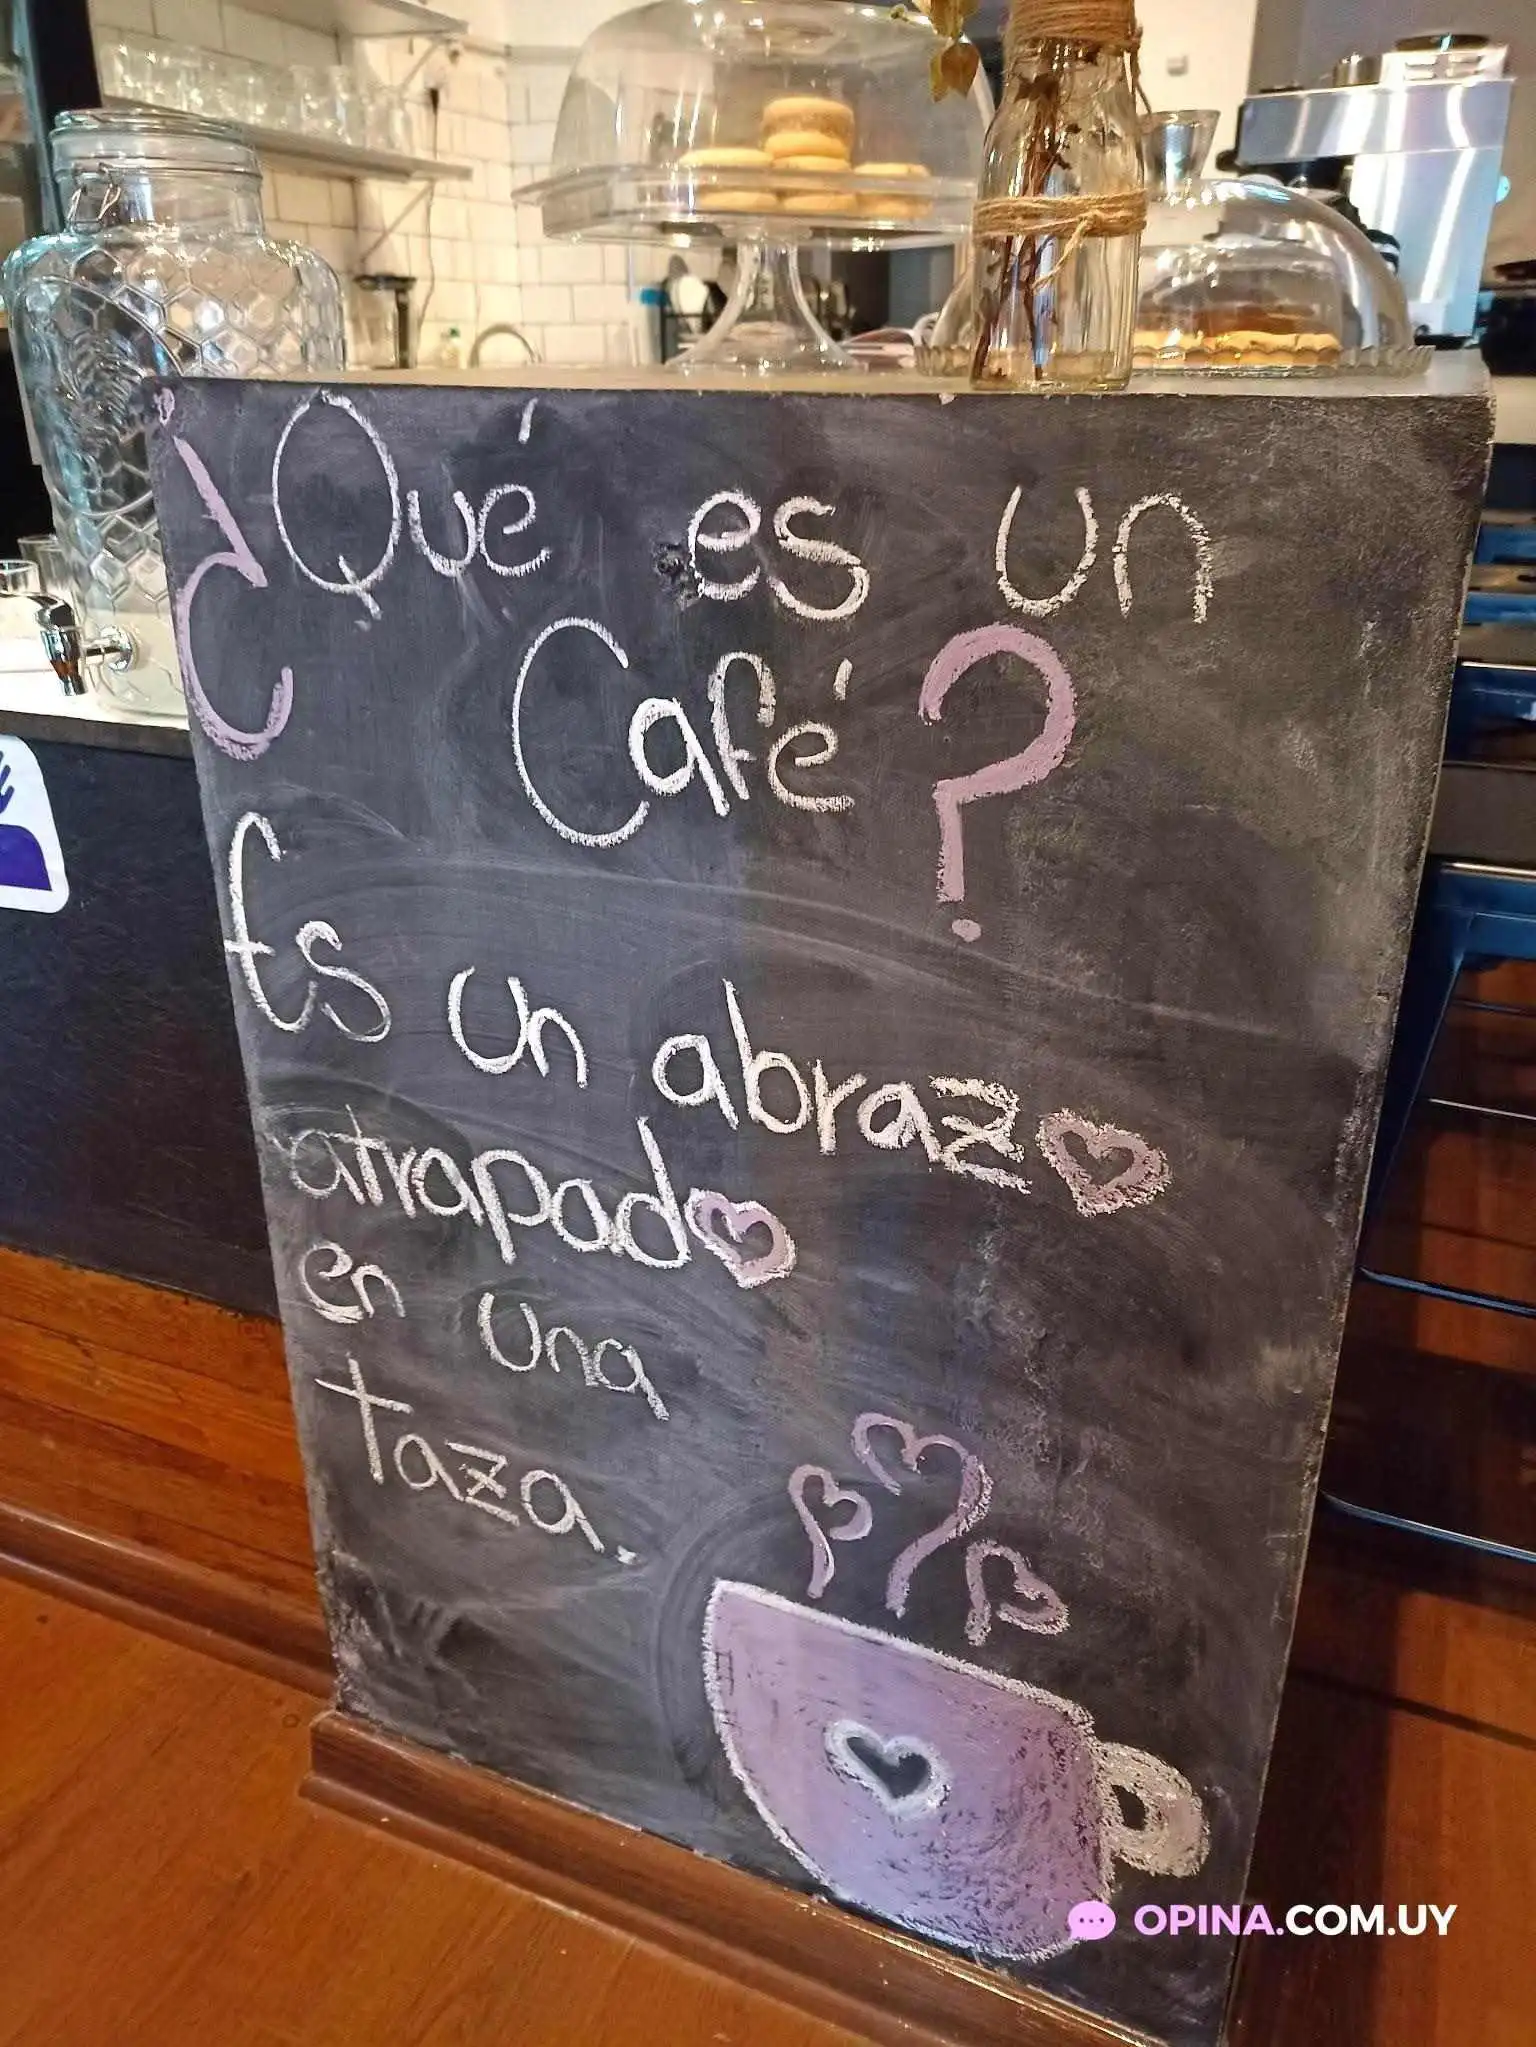 ¿Qué es un
Café?
Es un abrazo
atrapado
en una
taza.
OPINA.COM.UY